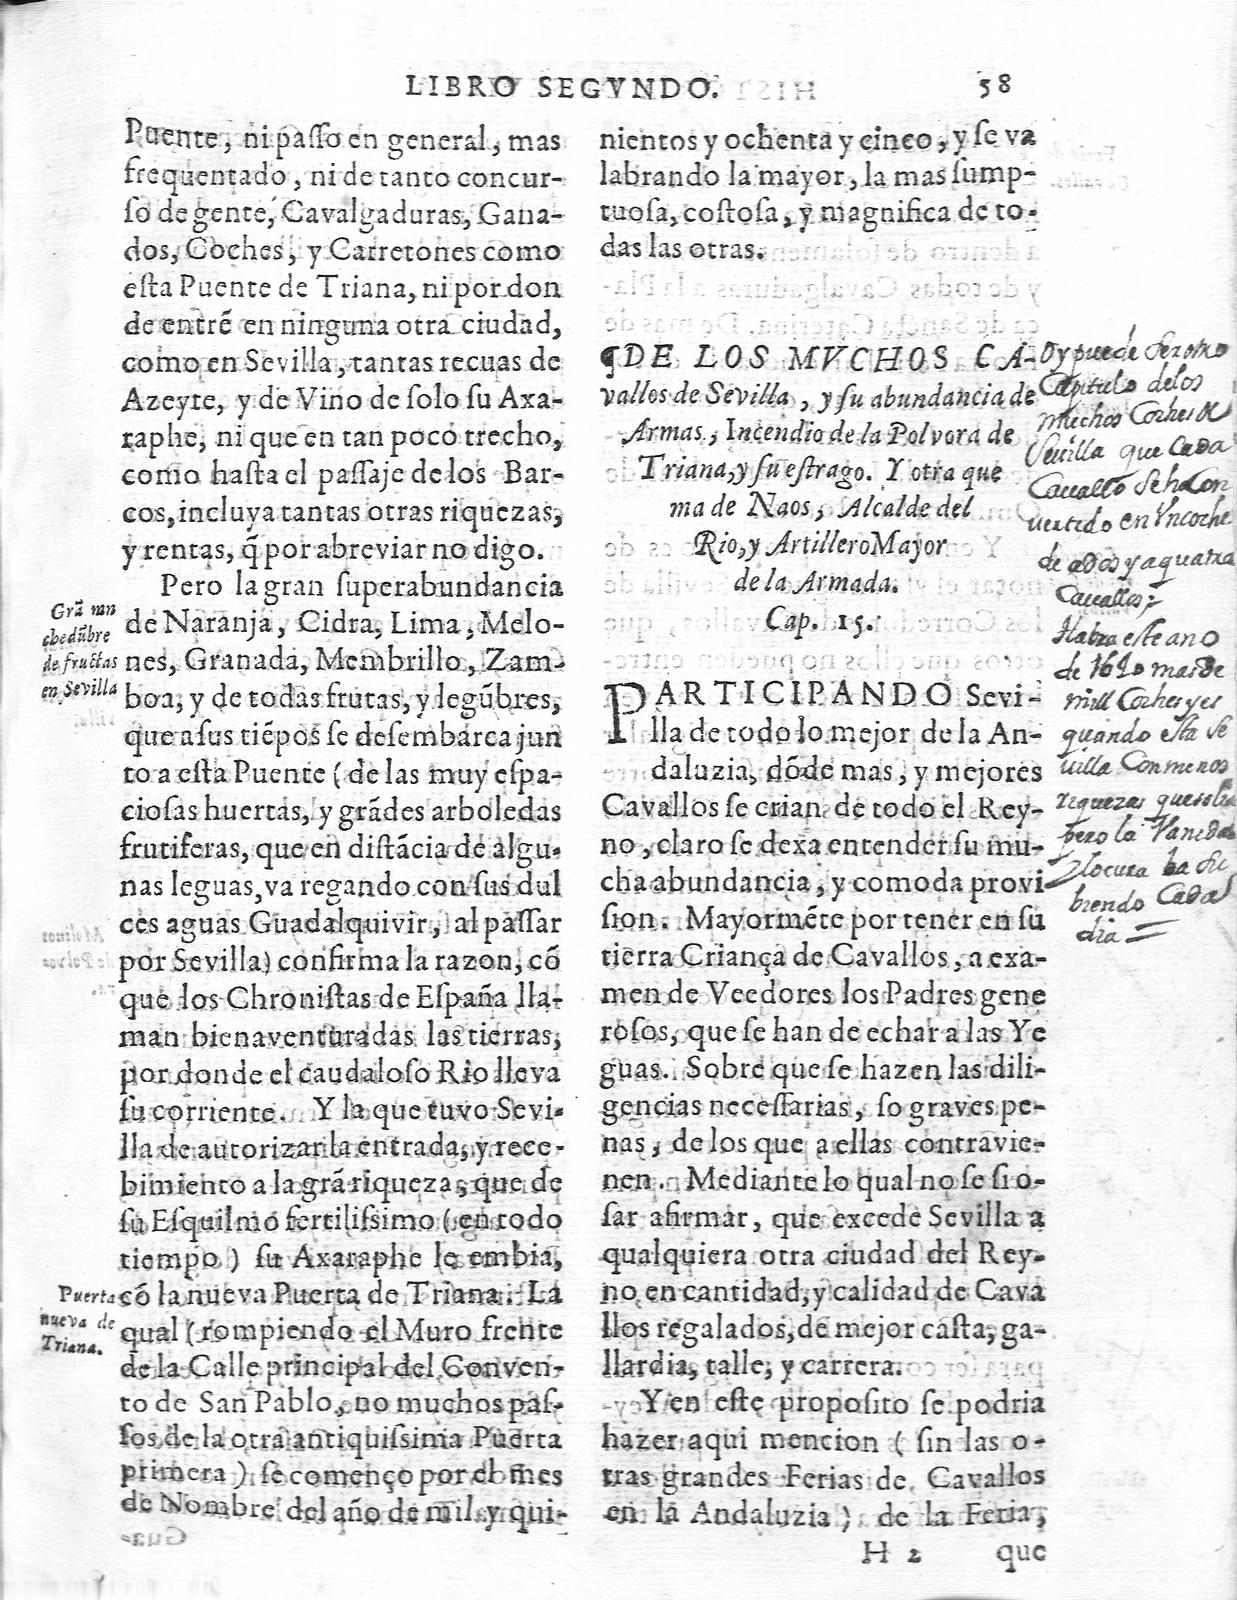 LIBRO SEGVNDO. 58
Puente, ni paſſo en general, mas
frequentado, ni de tanto concur-
ſo de gente, Cavalgaduras, Gana-
dos, Coches, y Carretones como
eſta Puente de Triana, ni por don
de entrẽ en ninguna otra ciudad,
como en Sevilla, tantas recuas de
Azeyte, y de Vino de ſolo ſu Axa-
raphe, ni que en tan poco trecho,
como haſta el paſſaje de los Bar-
cos, incluya tantas otras riquezas,
y rentas, q̃ por abreviar no digo.
Pero la gran ſuperabundancia
de Naranja, Cidra, Lima, Melo-
nes, Granada, Membrillo, Zam-
boa, y de todas frutas, y legũbres,
que aſus tiẽpos ſe deſembarca jun
to a eſta Puente (de las muy eſpa-
cioſas huertas, y grãdes arboledas
frutiferas, que en diſtãcia de algu-
nas leguas, va regando con ſus dul
ces aguas Guadalquivir, al paſſar
por Sevilla) confirma la razon, cõ
que los Chroniſtas de Eſpaña lla-
man bienaventuradas las tierras,
por donde el caudaloſo Rio lleva
ſu corriente. Y la que tuvo Sevi-
lla de autorizar la entrada, y rece-
bimiento a la grã riqueza, que de
ſu Eſquilmo fertiliſsimo (en todo
tiempo) ſu Axaraphe le embia,
cõ la nueva Puerta de Triana. La
qual (rompiendo el Muro frente
de la Calle principal del Conven-
to de San Pablo, no muchos paſ-
ſos de la otra antiquiſsima Puerta
primera) ſe començo por el mes
de Nombre del año de mil y qui-
Grã mu
chedũbre
de fructas
en Sevilla
Puerta
nueva de
Triana.
nientos y ochenta y cinco, y ſe va
labrando la mayor, la mas ſump-
tuoſa, coſtoſa, y magnifica de to-
das las otras.
¶DE LOS MVCHOS CA-
vallos de Sevilla, y ſu abundancia de
Armas, Incendio de la Polvora de
Triana, y ſu eſtrago. Y otra que
ma de Naos, Alcalde del
Rio, y Artillero Mayor
de la Armada.
Cap. 15.
PARTICIPANDO Sevi-
lla de todo lo mejor de la An-
daluzia, dõde mas, y mejores
Cavallos ſe crian de todo el Rey-
no, claro ſe dexa entender ſu mu-
cha abundancia, y comoda provi
ſion. Mayormẽte por tener en ſu
tierra Criança de Cavallos, a exa-
men de Veedores los Padres gene
roſos, que ſe han de echar a las Ye
guas. Sobre que ſe hazen las dili-
gencias neceſſarias, ſo graves pe-
nas, de los que a ellas contravie-
nen. Mediante lo qual no ſe ſi o-
ſar afirmar, que excede Sevilla a
qualquiera otra ciudad del Rey-
no en cantidad, y calidad de Cava
llos regalados, de mejor caſta, ga-
llardia, talle, y carrera.
Y en eſte propoſito ſe podria
hazer aqui mencion (ſin las o-
tras grandes Ferias de Cavallos
en la Andaluzia) de la Feria,
H 2 que
Oy puede ser otro
Capitulo de los
muchos Coches de
Sevilla que Cada
Cauallo se ha Con
uertido en Vn coche
de a dos y a quatro
Cauallos;
Habra este ano
de 1620 mas de
mill Coches y es
quando esta Se
uilla Con menos
riquezas
pero la Vanidad
y locura ha su
biendo Cada
dia